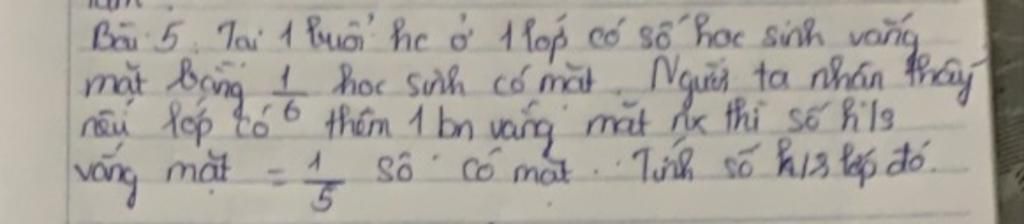 Bài 5. Tại 1 buổi hc ở 1 lớp có số học sinh vắng
mặt bằng 1/6 học sinh có mặt. Người ta nhận thấy
nếu lớp có thêm 1 bn vắng mặt nx thì số h/s
vắng mặt = 1/5 số có mặt. Tính số h/s lớp đó.